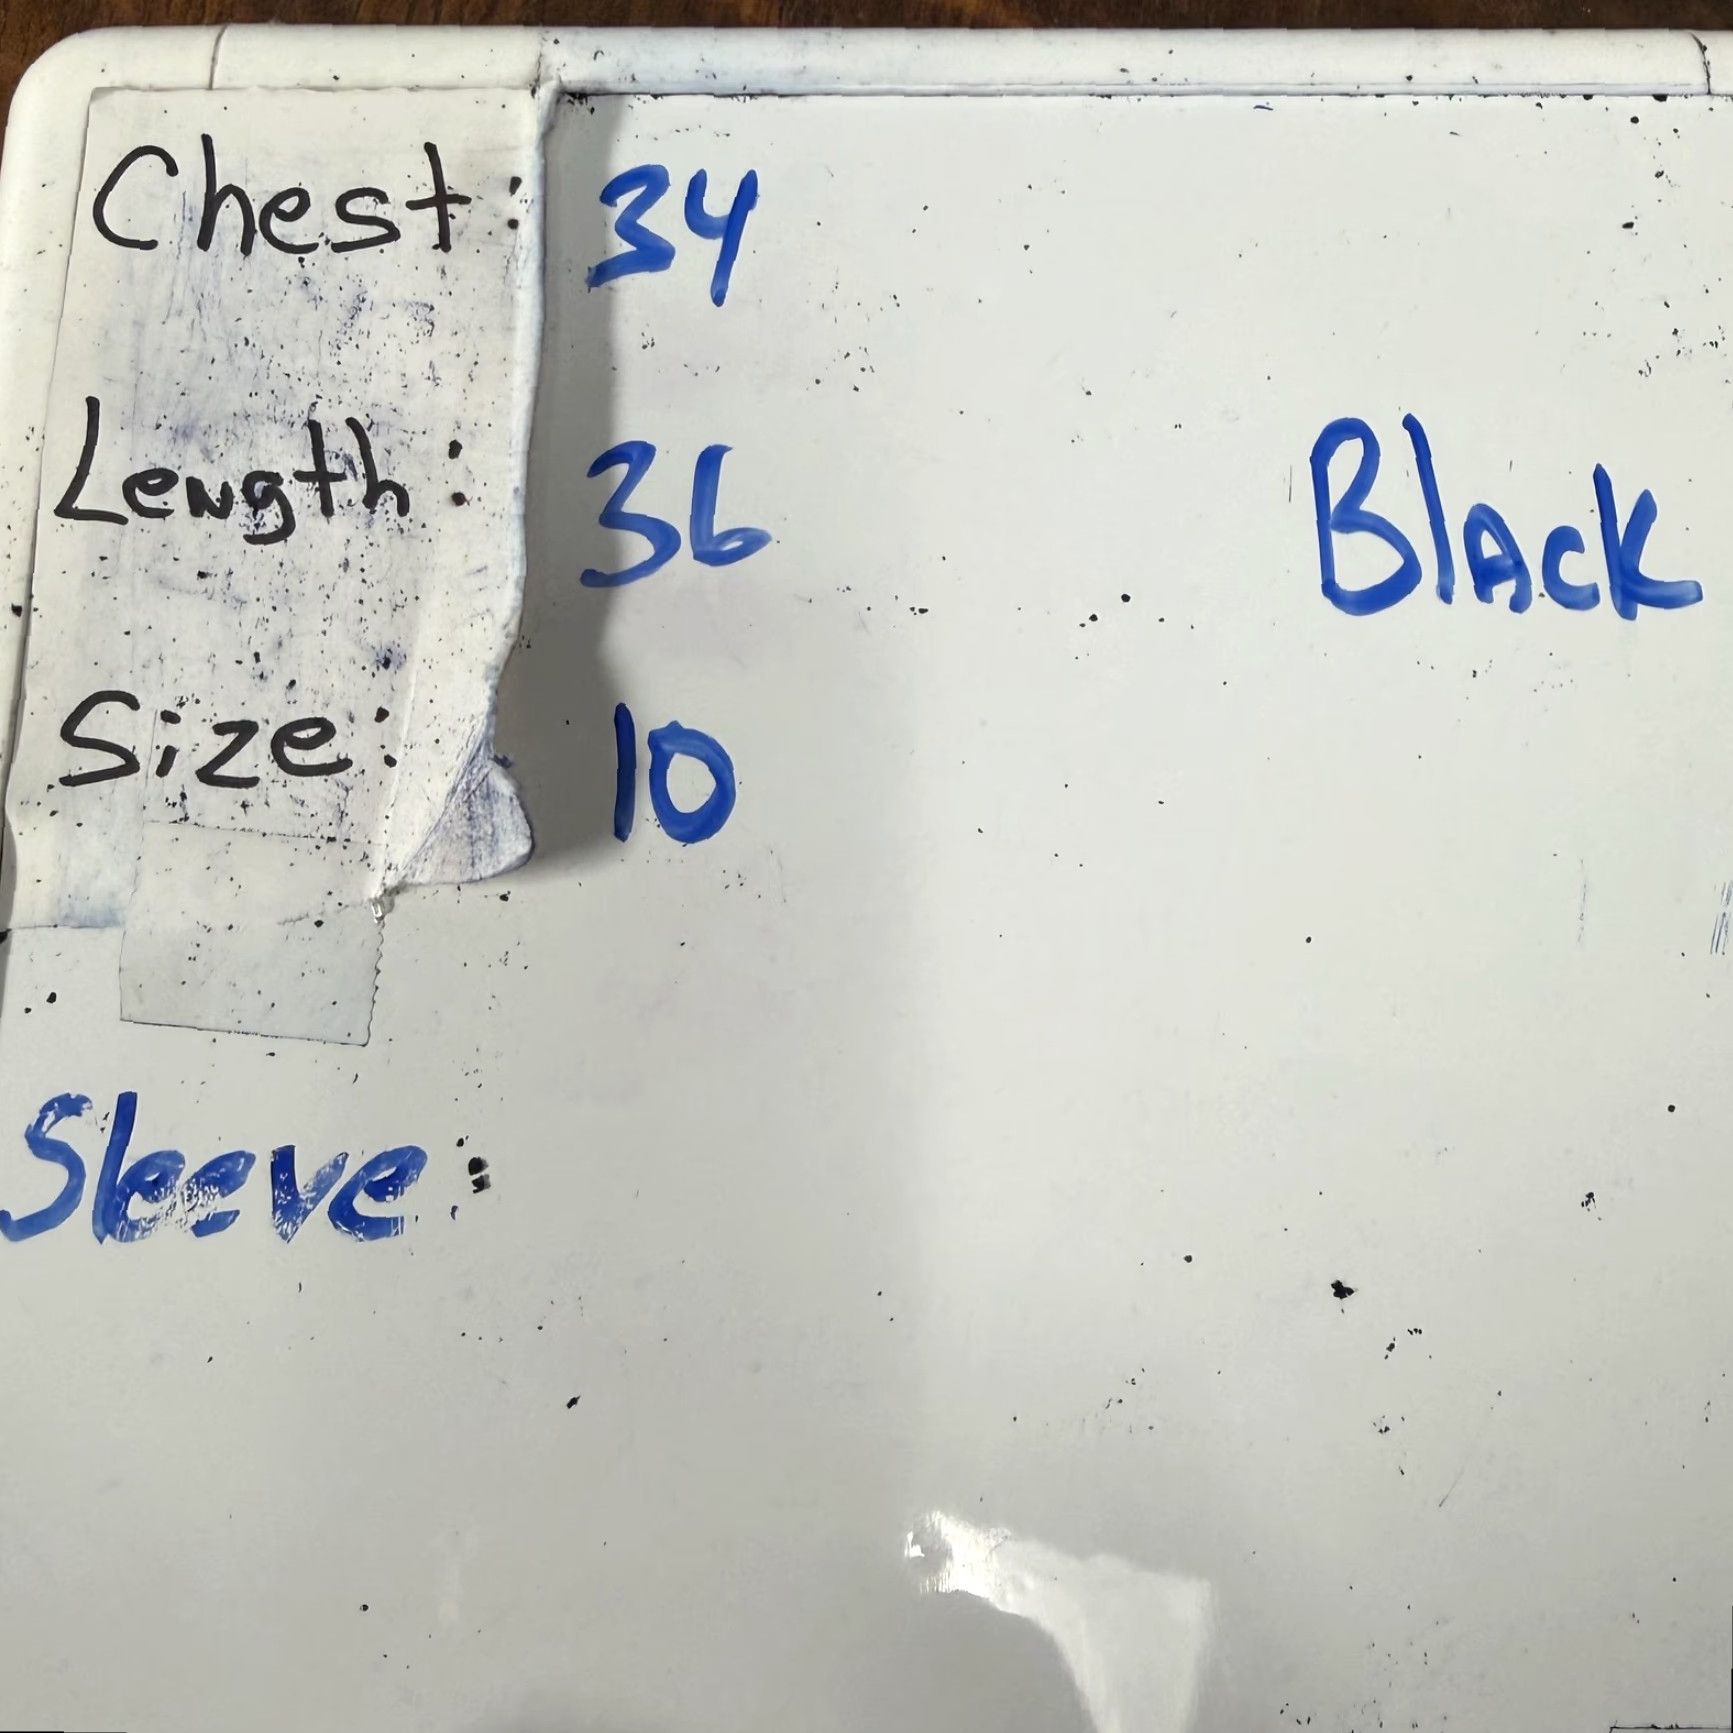 Chest: 34
Length: 36
Black
Size: 10
Sleeve: